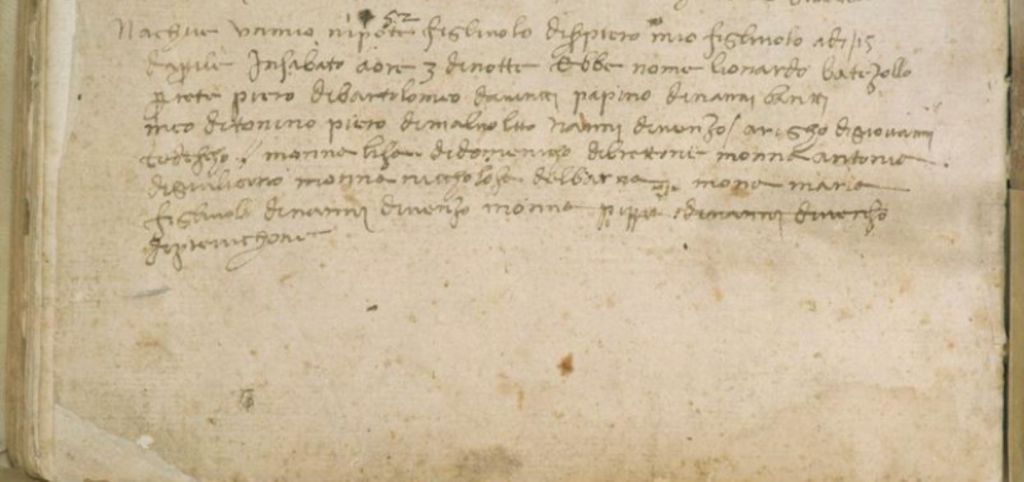 Nachue un mio nipote 52 figliuolo di s piero mio figliuolo a dì 15
d'aprile In sabato a ore 3 di notte Ebbe nome lionardo batezollo
prete piero di bartolomeo da vinci papino di nanni banti
meo di tonino piero di malvolto nanni di venzo / arigho di giovanni
tedescho monna lisa di domenicho di brettone monna antonia
di giuliano monna nicholosa del barna mona maria
figliuola di nanni di venzo monna pippa di nanni di venzo
di previchone